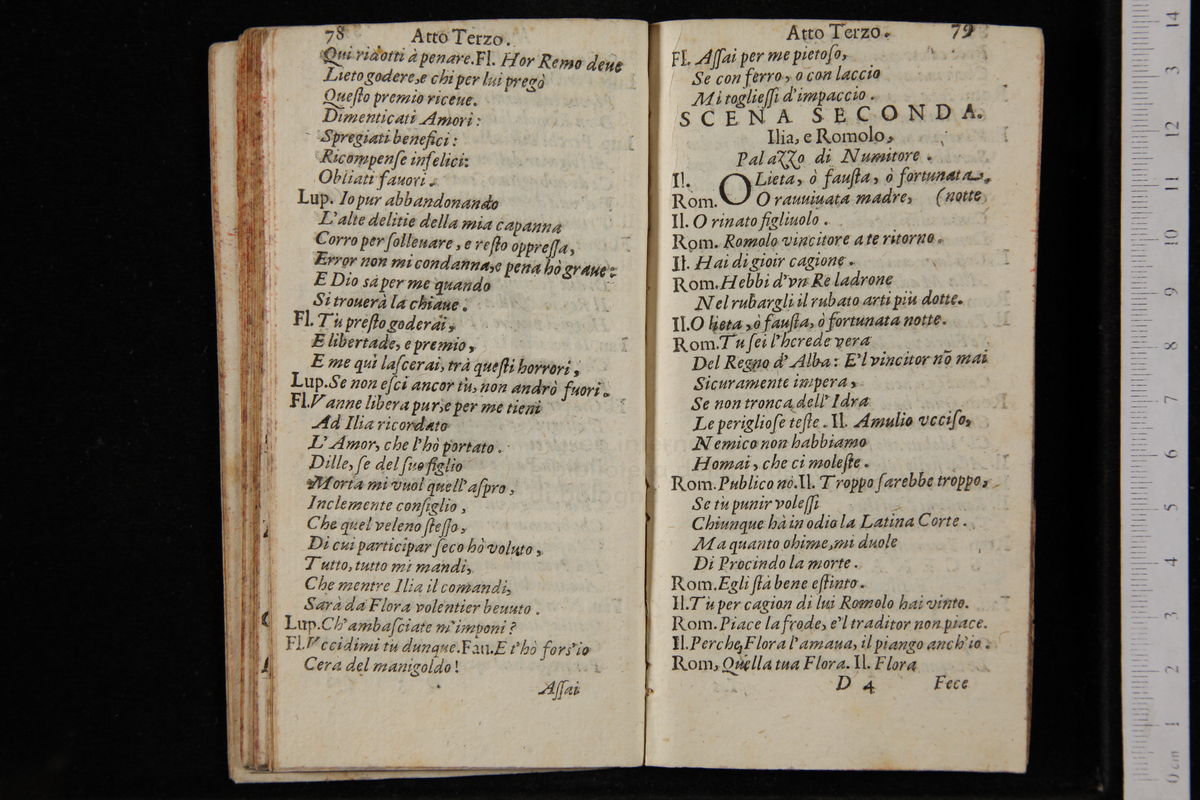 78 Atto Terzo.
Qui ridotti à penare. Fl. Hor Remo deue
Lieto godere, e chi per lui pregò
Questo premio riceue.
Dimenticati Amori:
Spregiati benefici:
Ricompense infelici:
Obliati fauori.
Lup. Io pur abbandonando
L'alte delitie della mia capanna
Corro per solleuare, e resto oppressa,
Error non mi condanna, e pena hò graue:
E Dio sà per me quando
Si trouerà la chiaue.
Fl. Tù presto goderai,
E libertade, e premio,
E me quì lascerai, trà questi horrori,
Lup. Se non esci ancor tù, non andrò fuori.
Fl. Vanne libera pur, e per me tieni
Ad Ilia ricordato
L'Amor, che l'hò portato.
Dille, se del suo figlio
Morta mi vuol quell'aspro,
Inclemente consiglio,
Che quel veleno stesso,
Di cui participar seco hò voluto,
Tutto, tutto mi mandi,
Che mentre Ilia il comandi,
Sarà da Flora volentier beuuto.
Lup. Ch'ambasciate m'imponi?
Fl. Vccidimi tù dunque. Fau. E t'hò fors'io
Cera del manigoldo!
Assai
Atto Terzo. 79
Fl. Assai per me pietoso,
Se con ferro, o con laccio
Mi togliessi d'impaccio.
SCENA SECONDA.
Ilia, e Romolo,
Palazzo di Numitore.
Il. O Lieta, ò fausta, ò fortunata
Rom. O rauuiuata madre, (notte
Il. O rinato figliuolo.
Rom. Romolo vincitore a te ritorno.
Il. Hai di gioir cagione.
Rom. Hebbi d'vn Re ladrone
Nel rubargli il rubato arti più dotte.
Il. O lieta, ò fausta, ò fortunata notte.
Rom. Tu sei l'herede vera
Del Regno d'Alba: E'l vincitor nō mai
Sicuramente impera,
Se non tronca dell'Idra
Le perigliose teste. Il. Amulio vcciso,
Nemico non habbiamo
Homai, che ci moleste.
Rom. Publico nò. Il. Troppo sarebbe troppo,
Se tù punir volessi
Chiunque hà in odio la Latina Corte.
Ma quanto ohime, mi duole
Di Procindo la morte.
Rom. Egli stà bene estinto.
Il. Tù per cagion di lui Romolo hai vinto.
Rom. Piace la frode, e'l traditor non piace.
Il. Perche Flora l'amaua, il piango anch'io.
Rom, Quella tua Flora. Il. Flora
D 4 Fece
14
13
12
11
10
9
8
7
6
5
4
3
2
1
0 cm